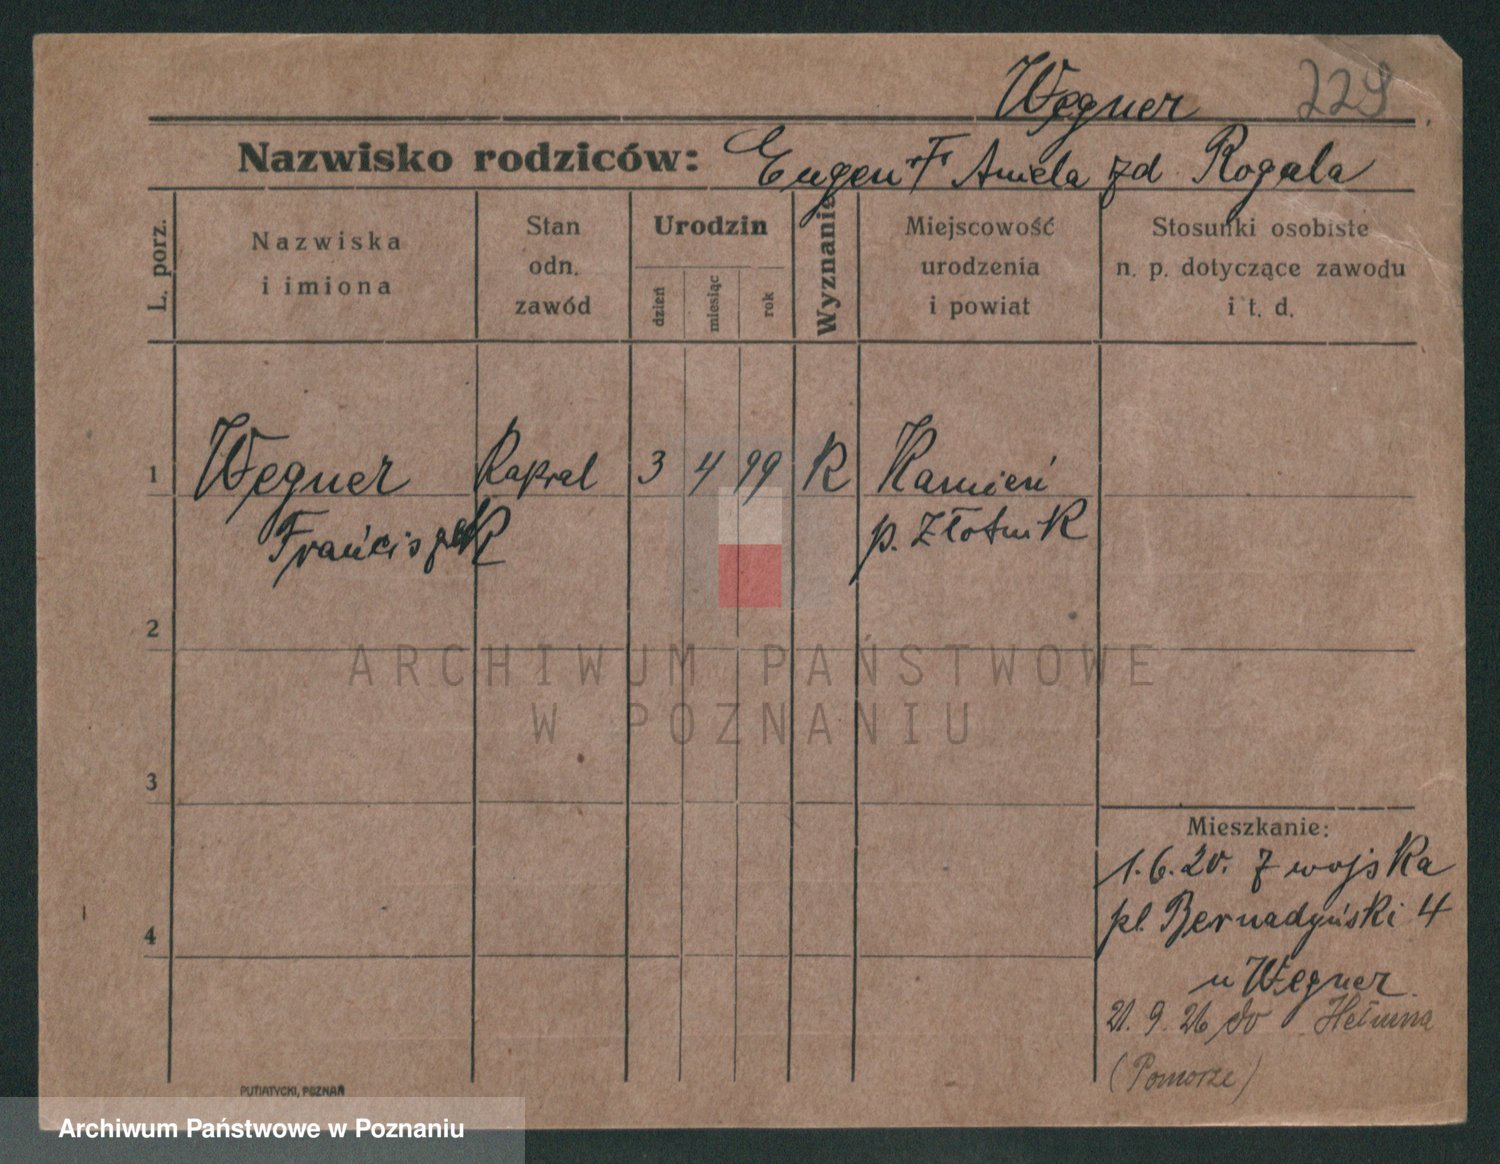 Wegner 229
Nazwisko rodziców: Eugen Aniela zd Rogala
L. porz.
Nazwiska i imiona
Stan odn. zawód
Urodzin
dzień
miesiąc
rok
Wyznanie
Miejscowość urodzenia i powiat
Stosunki osobiste n. p. dotyczące zawodu i t. d.
1 Wegner Kapral 3 4 99 K Kamień
Franciszek p. Złotnik
2
3
4
Mieszkanie:
1.6.20. z wojska
pl. Bernadyński 4
u Wegner
21. 9. 26 do
(Pomorze)
PUTIATYCKI, POZNAŃ
ARCHIWUM PAŃSTWOWE
W POZNANIU
Archiwum Państwowe w Poznaniu